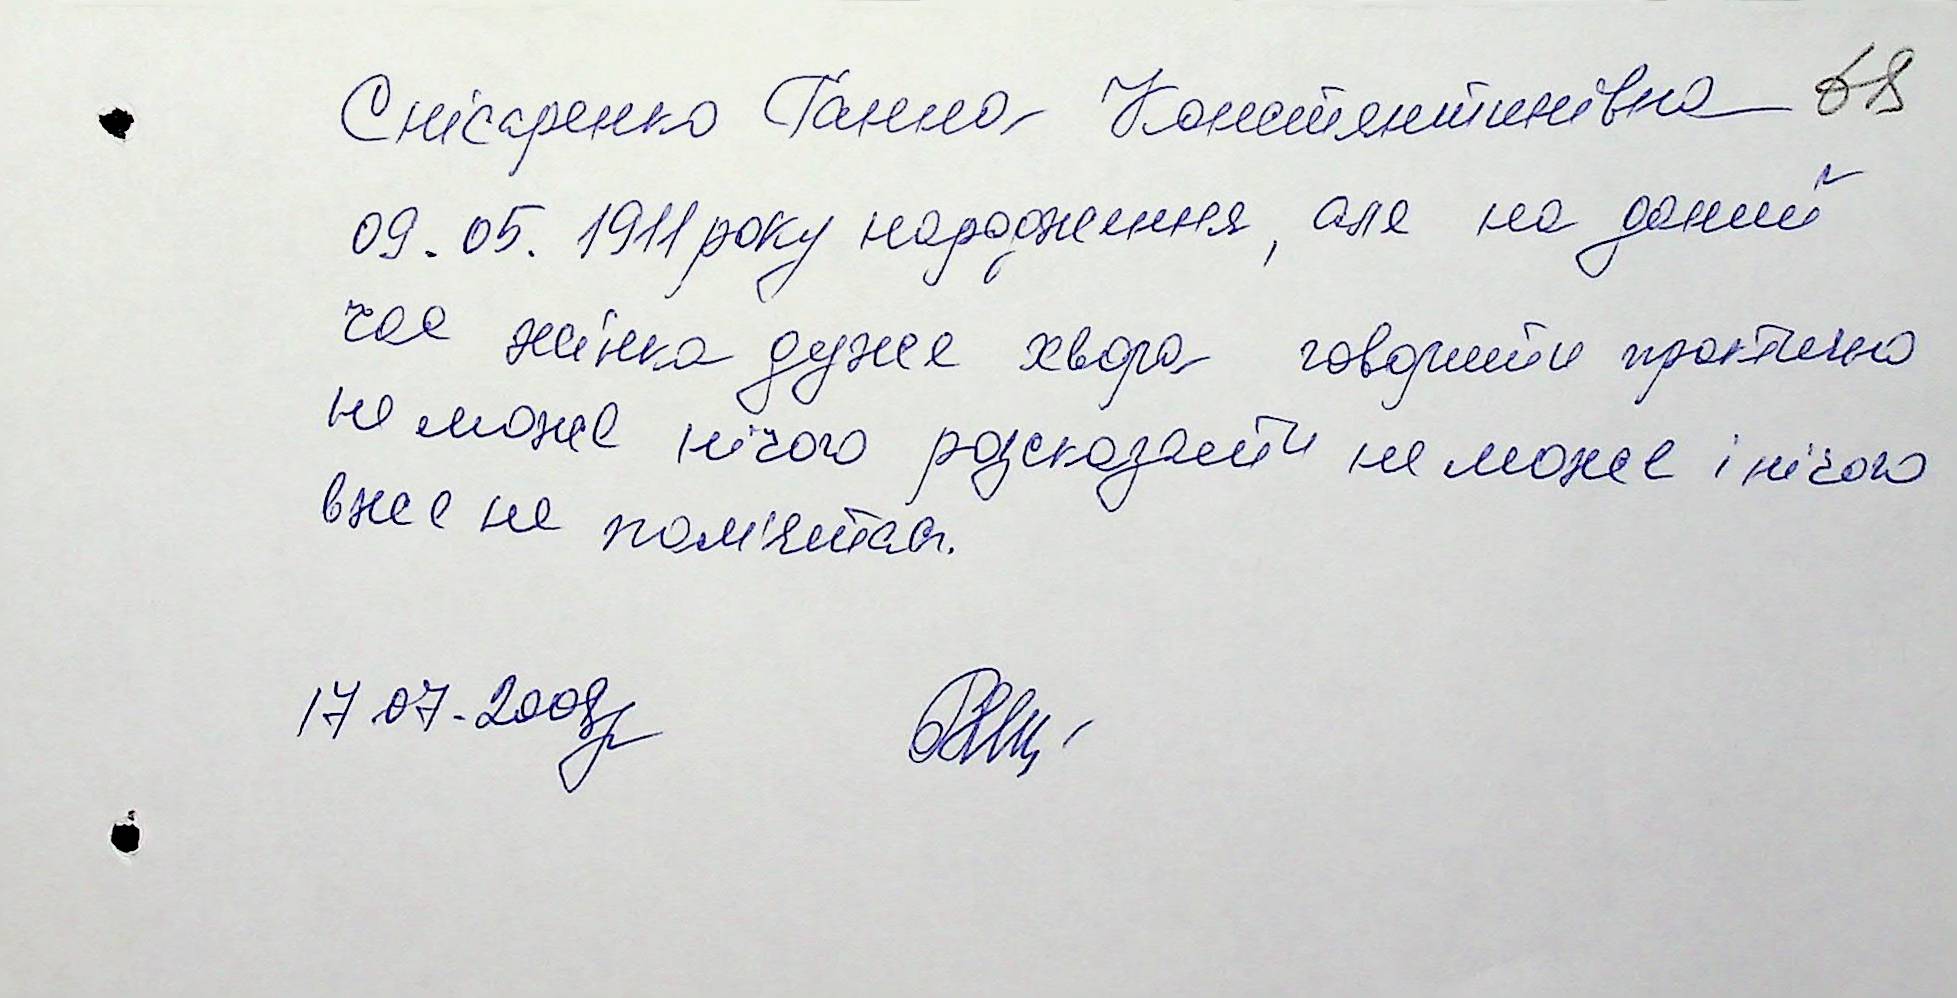 Снісаренко Ганна Констянтинівна 68
09.05.1911 року народження, але на даний
час жінка дуже хвора говорити практично
не може нічого розсказати не може і нічого
вже не пам'ятає.
17.07.2008р